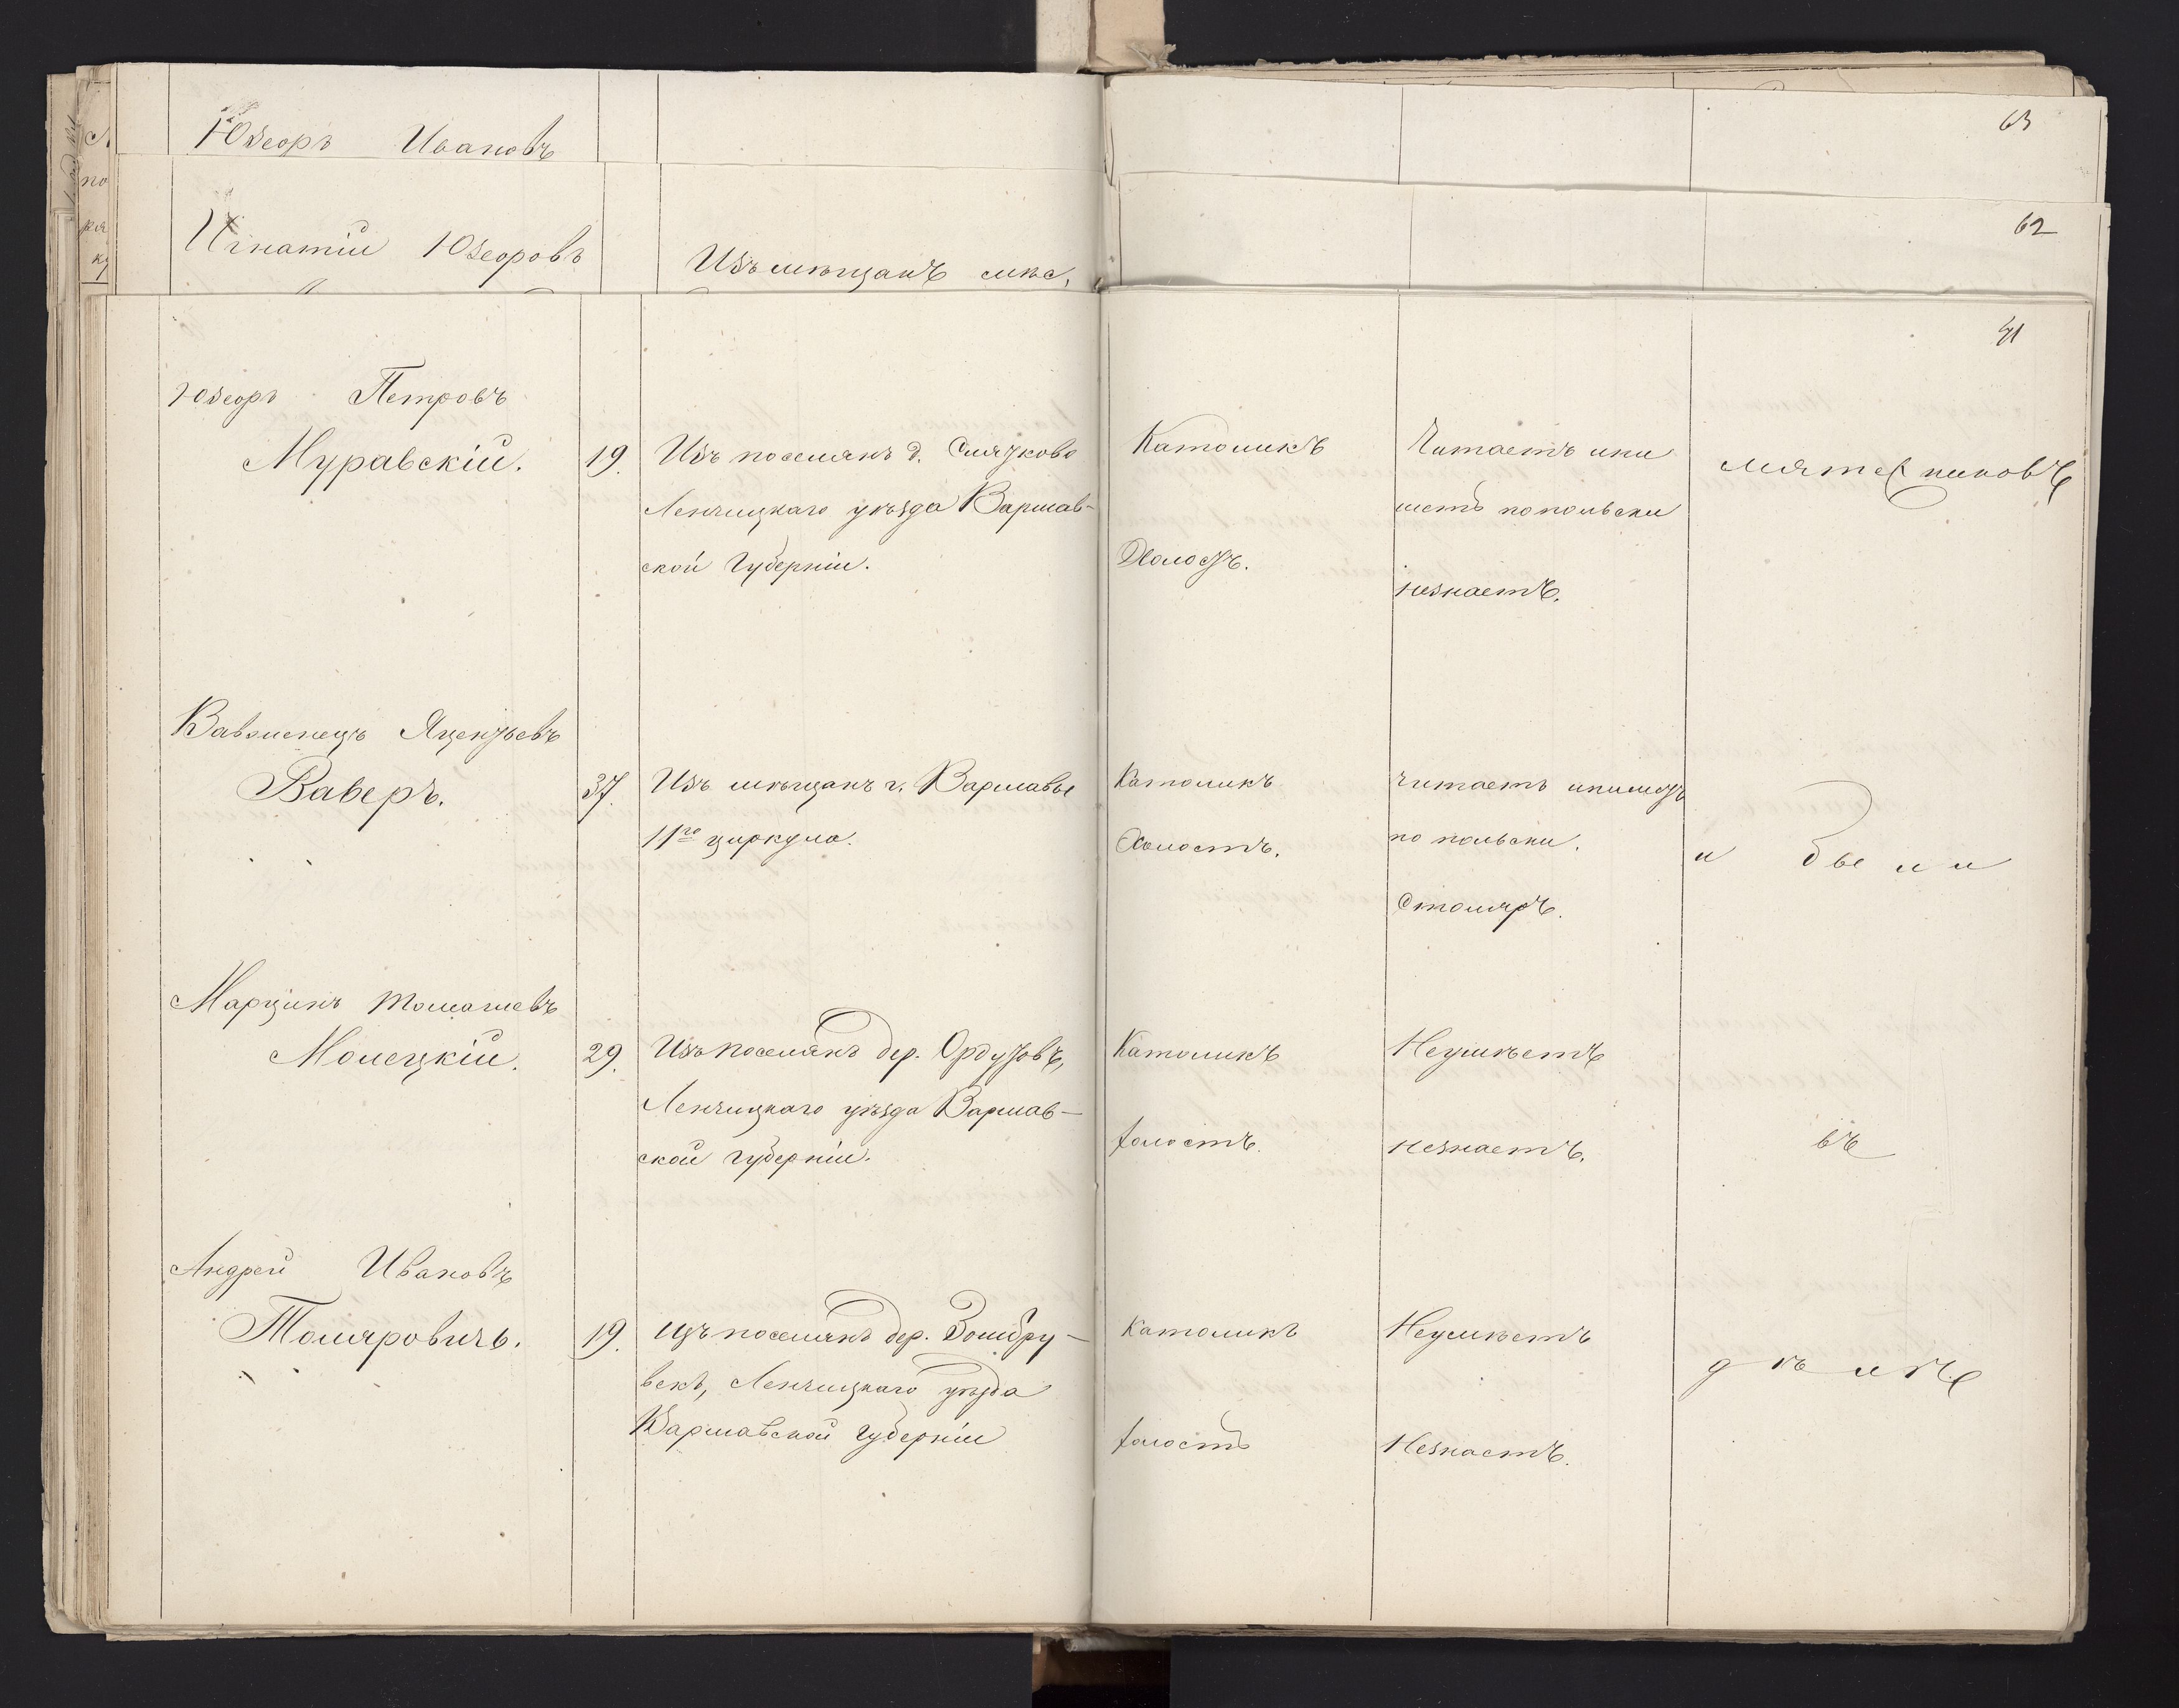 Юзефъ Ивановъ
63
Игнатій Юзефовъ
Изъ мѣщанъ мѣс.
62
41
Юзефъ Петровъ
Муравскій.
19.
Изъ поселянъ д.
Ленчицкаго уѣзда Варшав-
ской Губерніи.
Католикъ
Холостъ.
Читаетъ ипи
шетъ попольски
незнаетъ.
мятежниковъ
Вавженецъ Яцентьевъ
Ваверъ.
37.
Изъ мѣщанъ г. Варшавы
11го циркула.
Католикъ
Холостъ.
Читаетъ ипишетъ
по польски.
Столяръ.
и были
Марцинъ Томашевъ
Молецкій.
29.
Изъ поселянъ дер.
Ленчицкаго уѣзда Варшав-
ской губерніи.
Католикъ
холостъ.
Неумѣетъ
незнаетъ.
въ
Андрей Ивановъ
Толяровичъ.
19.
Изъ поселянъ дер. Домбру-
векъ, Ленчицкаго уѣзда
Варшавской губерніи
Католикъ
холостъ
Неумѣетъ
Незнаетъ.